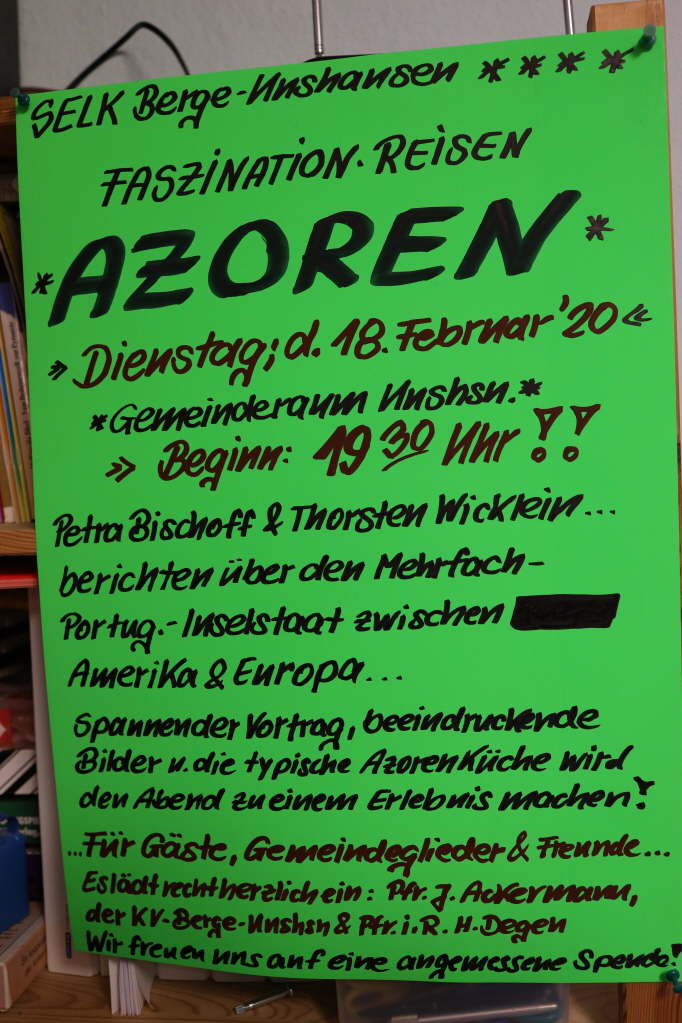 SELK Berge-Unshausen ****
FASZINATION. REISEN
*AZOREN*
» Dienstag; d. 18. Februar '20 «
*Gemeinderaum Unshsn.*
» Beginn: 19 30 Uhr !!
Petra Bischoff & Thorsten Wicklein...
berichten über den Mehrfach-
Portug.-Inselstaat zwischen
Amerika & Europa...
Spannender Vortrag, beeindruckende
Bilder u. die typische AzorenKüche wird
den Abend zu einem Erlebnis machen!
...Für Gäste, Gemeindeglieder & Freunde...
Es lädt recht herzlich ein: Pfr. J. Ackermann,
der KV-Berge-Unshsn & Pfr. i. R. H. Degen
Wir freuen uns auf eine angemessene Spende!